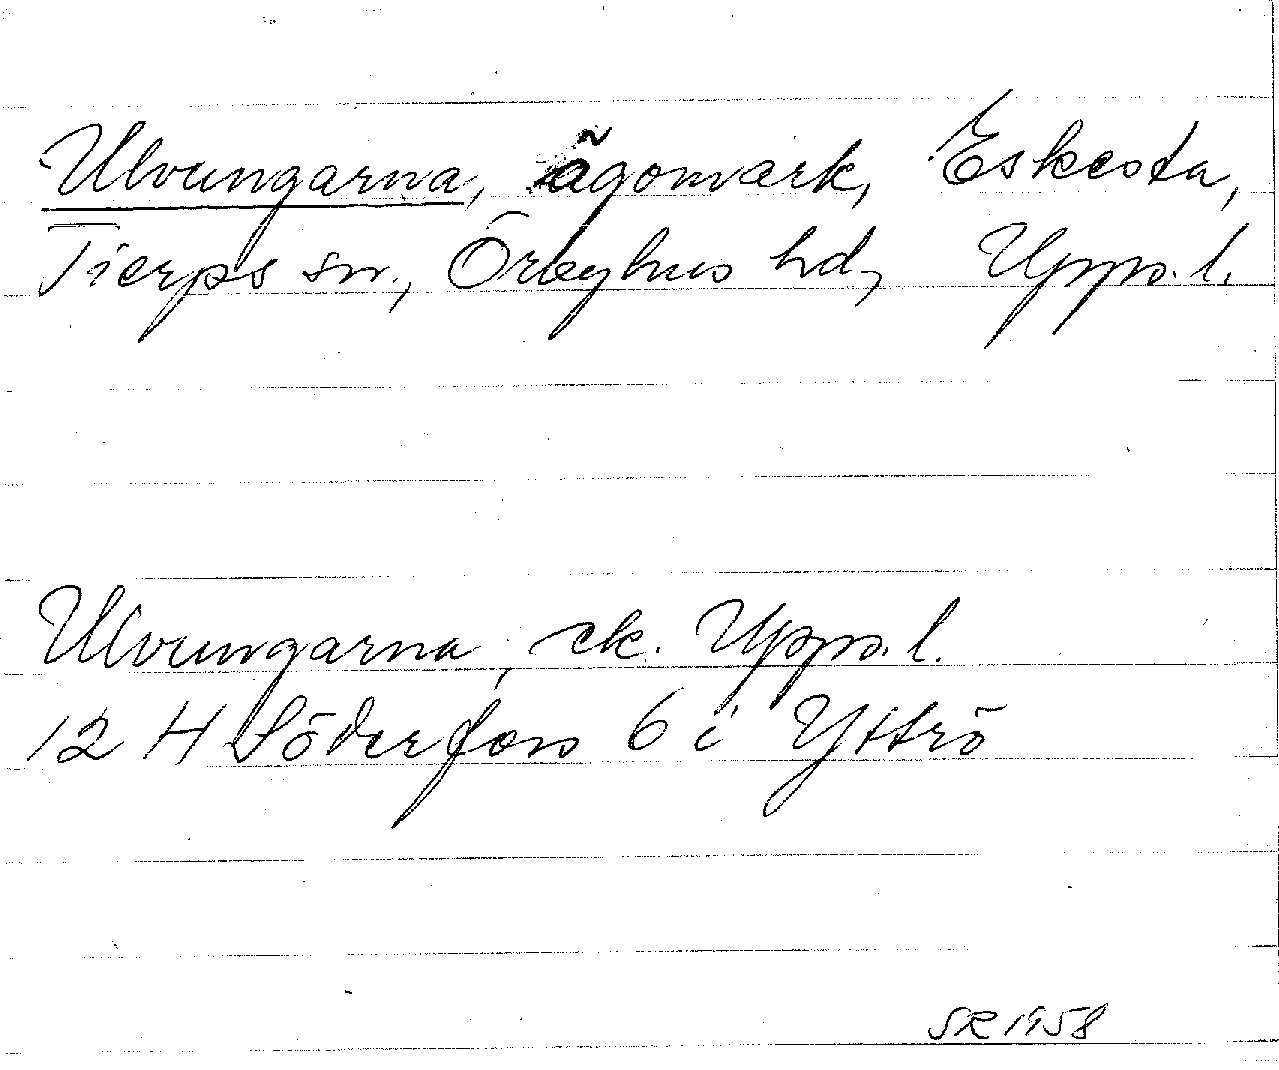 Ulvungarna, ägomark, Eskesta,
Tierps sn., Örbyhus hd, Upps. l.
Ulvungarna, ek. Upps. l.
12 H Söderfors 6 i Yttrö
SR 1958